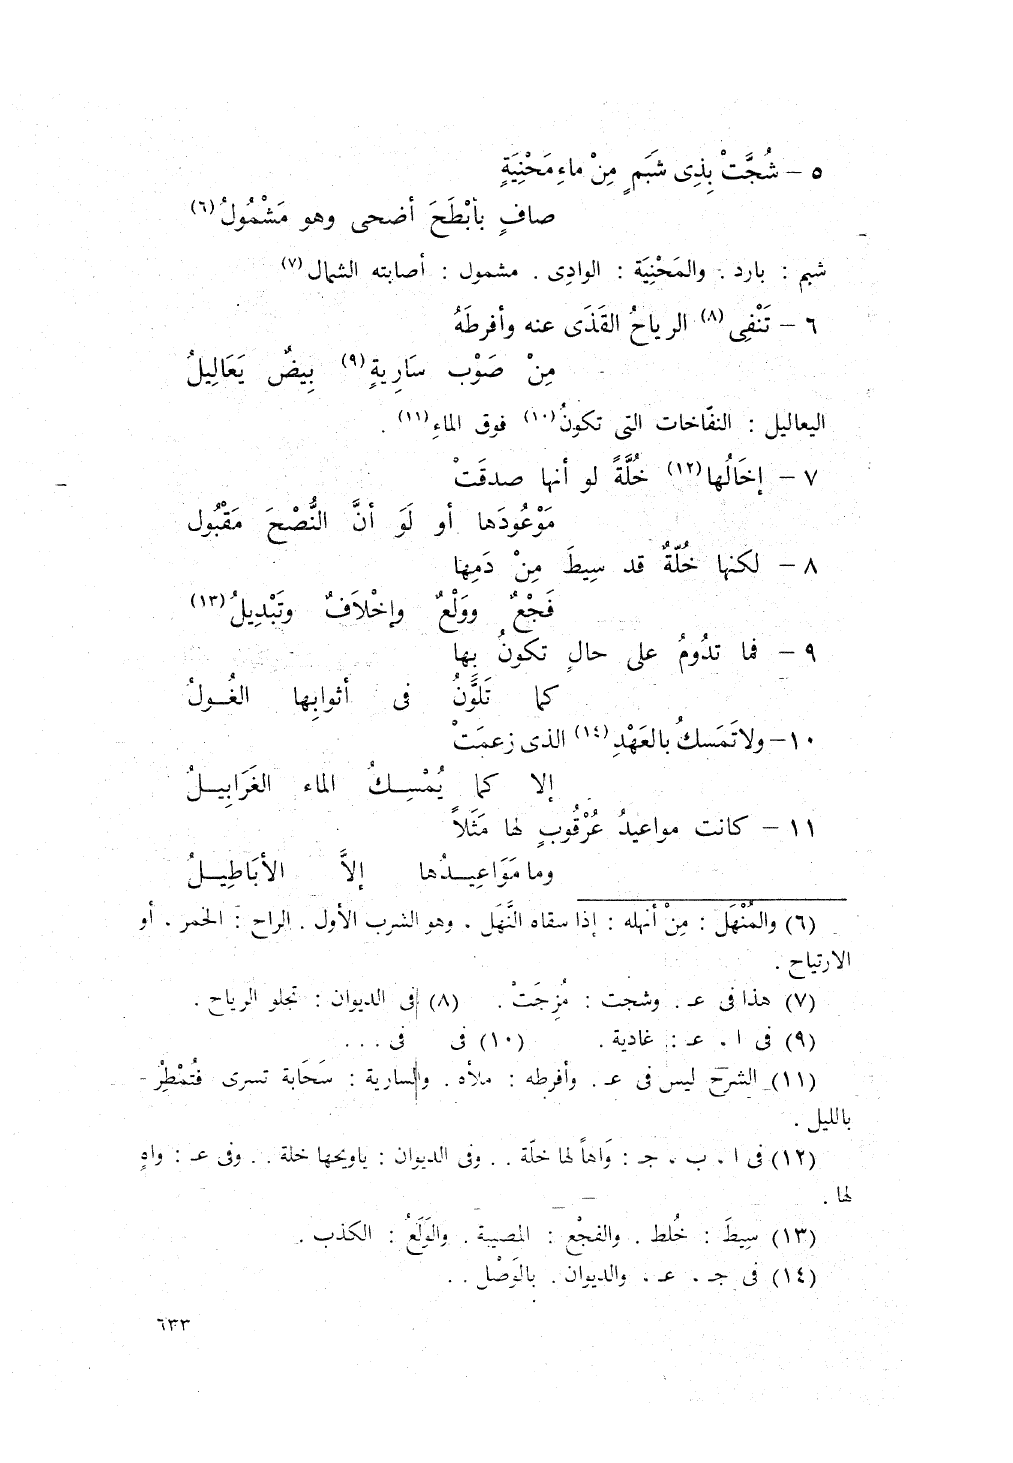 ٥ – شُجَّتْ بِذِى شَبَمٍ مِنْ ماءِ مَحْنِيَةٍ
صافٍ بأَبْطَحَ أضحى وهو مَشْمُولُ (٦)
شبم : بارد . والمَحْنِيَة : الوادِى . مشمول : أصابته الشمال (٧)
٦ – تَنْفِى (٨) الرياحُ القَذَى عنه وأفرطَهُ
مِنْ صَوْب سَارِيةٍ (٩) بِيضٌ يَعَالِيلُ
اليعاليل : النفّاخات التى تكونُ (١٠) فوق الماءِ (١١) .
٧ – إخَالُها (١٢) خُلَّةً لو أنها صدقَتْ
مَوْعُودَها أو لَوَ أنَّ النُّصْحَ مَقْبُول
٨ – لكنها خُلّةٌ قد سِيطَ مِنْ دَمِها
فَجْعٌ ووَلْعٌ وإخْلاَفٌ وتَبْدِيلُ (١٣)
٩ – فما تدُومُ على حالٍ تكونُ بِها
كما تَلَوَّنُ فى أثوابِها الغُــولُ
١٠– ولاتَمَسكُ بالعَهْدِ (١٤) الذى زعمَتْ
إلا كما يُمْسِــكُ الماء الغَرَابِيــلُ
١١ – كانت مواعيدُ عُرْقُوبٍ لها مَثَلاً
وما مَوَاعِيــدُها إلاَّ الأبَاطِيــلُ
(٦) والمُنْهَل : مِنْ أنهله : إذا سقاه النَّهَل . وهو الشرب الأول . الراح : الخمر . أو
الارتياح .
(٧) هذا فى عـ . وشجت : مُزِجَتْ . (٨) فى الديوان : تجلو الرياح .
(٩) فى ا . عـ : غادية . (١٠) فى فى . . .
(١١) الشرح ليس فى عـ . وأفرطه : ملأه . والسارية : سَحَابة تسرى فتُمْطِرُ
بالليل .
(١٢) فى ا . ب . جـ : وَاهاً لها خلّة . . وفى الديوان : ياويحها خلة . . وفى عـ : واهٍ
لها .
(١٣) سِيطَ : خُلط . والفجْع : المصيبة . والوَلَعُ : الكذب .
(١٤) فى جـ . عـ . والديوان . بالوَصْل . .
٦٣٣